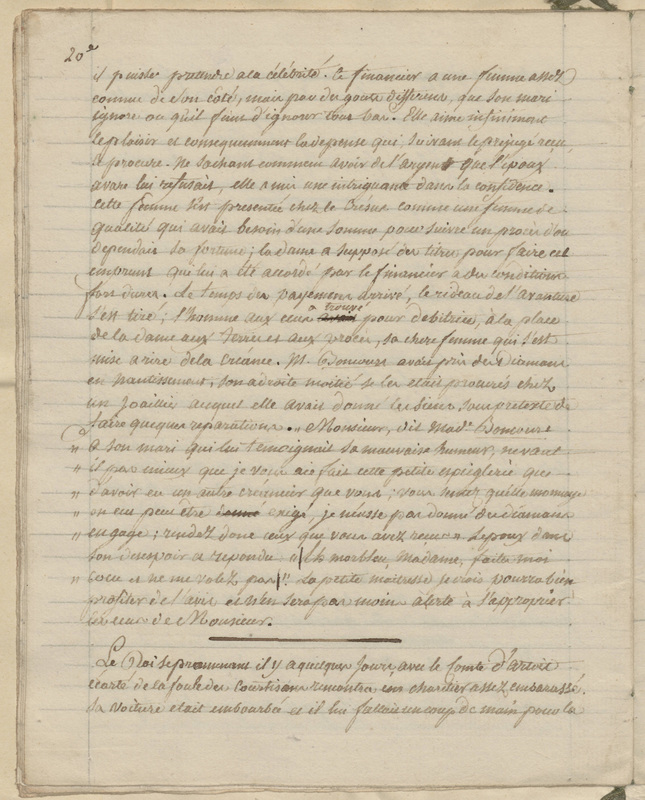 20e
il puisse pretendre a la célébrité. Ce financier a une femme assez
connue de son côté, mais par des gouts differens, que son mari
ignore ou qu'il feint d'ignorer tout bas. Elle aime infiniment
le plaisir et consequemment la depense qui, suivant le prejugé reçu,
le procure. Ne sachant comment avoir de l'argent que l'epoux
avare lui refusait, elle a mis une intriguante dans la confidence.
Cette femme s'est presentée chez le Crésus comme une femme de
qualité qui avait besoin d'une somme pour suivre un procès d'ou
dependait sa fortune; la dame a supposé des titres pour faire cet
emprunt qui lui a été accordé par le financier a des conditions
fort dures. Le temps du payement arrivé, le rideau de l'avanture
s'est tiré; l'homme aux ecus a trouvé pour debitrice, à la place
de la dame aux terres et aux procès, sa chere femme qui s'est
mise a rire de la creance. M. Boncourt avait pris des Diamans
en nantissement, son adroite moitié se les etait procurés chez
un joaillier auquel elle avait donné les siens sous pretexte de
faire quelques reparations. „ Monsieur, dit Made Boncourt
„ a son mari qui lui temoignait sa mauvaise humeur, ne vaut
„ il pas mieux que je vous aie fait cette petite espièglerie que
„ d'avoir eu un autre créancier que vous; vous sentez qu'elle monnaye
„ on eut peut être exigé, je n'eusse pas donné des diamans
„ en gage; rendez donc ceux que vous avez recus „ L'epoux dans
„ son desespoir a repondu „ Eh morbleu, Madame, faites moi
„ cocu et ne me volez pas!! La petite maitresse je crois pourra bien
profiter de l'avis et n'en sera pas moins alerte à s'approprier
les ecus de Monsieur.
Le Roi se promenant il y a quelques jours avec le Comte d'Artois
ecarté de la foule des Courtisans rencontra un chartier assez embarassé.
Sa voiture etait embourbée et il lui fallait un coup de main pour la